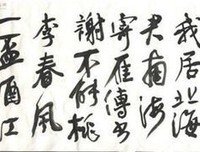 我居北海
君南海
寄雁傳書
謝不能桃
李春風
一盃酒江